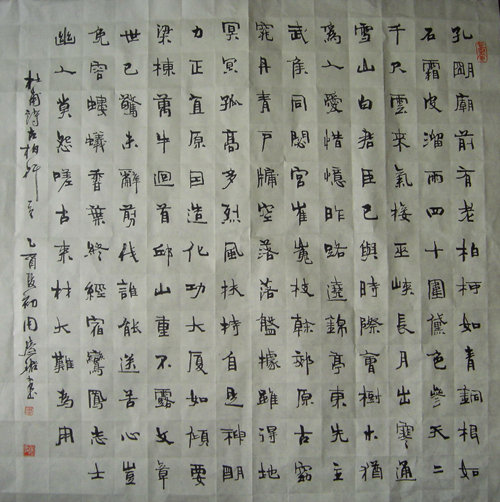 孔朙廟前有老柏柯如青銅根如
石霜皮溜雨四十圍黛色參天二
千尺雲來氣接巫峽長月出寒通
雪山白君臣已與時際會樹木猶
爲人愛惜憶昨路遶錦亭東先主
武侯同閟宮崔嵬枝榦郊原古窈
窕丹青戶牖空落落盤據雖得地
冥冥孤高多烈風扶持自是神朙
力正直原因造化功大厦如傾要
梁棟萬牛迴首邱山重不露文章
世已驚未辭剪伐誰能送苦心豈
免容螻蟻香葉終經宿鸞鳳志士
幽人莫怨嗟古來材大難爲用
杜甫詩古柏行 乙酉 初周 書